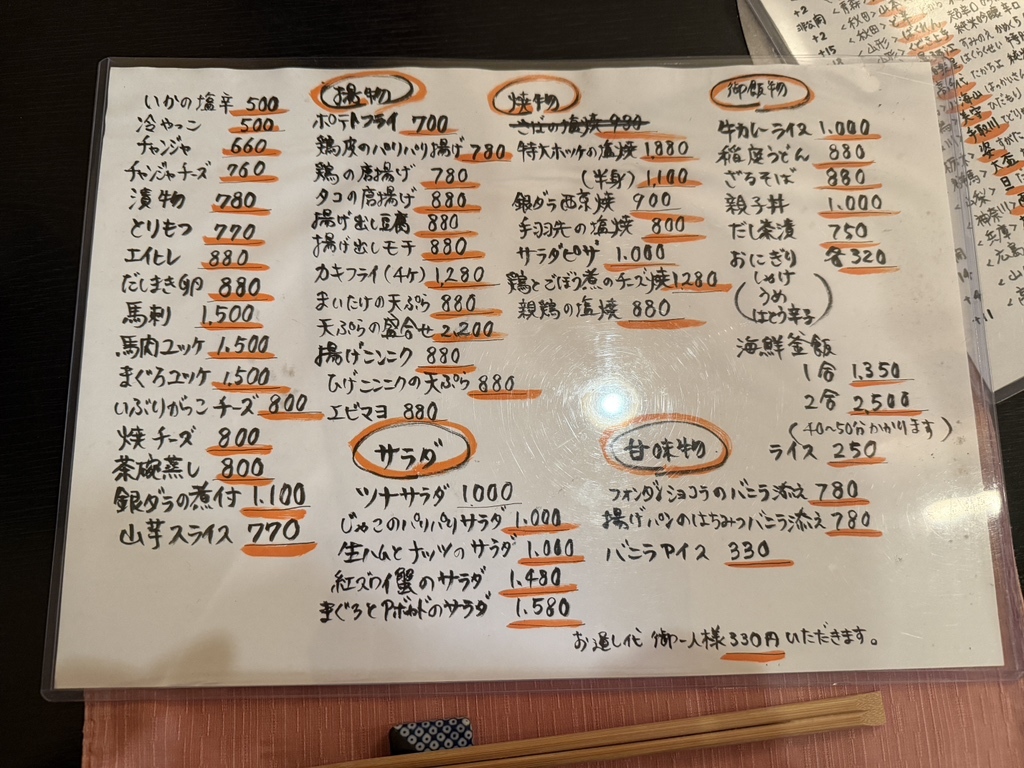 いかの塩辛 500
冷やっこ 500
チャンジャ 660
チャンジャチーズ 760
漬物 780
とりもつ 770
エイヒレ 880
だしまき卵 880
馬刺 1,500
馬肉ユッケ 1,500
まぐろユッケ 1,500
いぶりがっこチーズ 800
焼チーズ 800
茶碗蒸し 800
銀ダラの煮付 1,100
山芋スライス 770
揚物
ポテトフライ 700
鶏皮のパリパリ揚げ 780
鶏の唐揚げ 780
タコの唐揚げ 880
揚げ出し豆腐 880
揚げ出しモチ 880
カキフライ(4ケ) 1,280
まいたけの天ぷら 880
天ぷらの盛合せ 2,200
揚げニンニク 880
ひげニンニクの天ぷら 880
エビマヨ 880
サラダ
ツナサラダ 1000
じゃこのパリパリサラダ 1,000
生ハムとナッツのサラダ 1,000
紅ズワイ蟹のサラダ 1,480
まぐろとアボカドのサラダ 1,580
焼物
さばの塩焼 980
特大ホッケの塩焼 1,880
(半身) 1,100
銀ダラ西京焼 900
手羽先の塩焼 800
サラダピザ 1,000
鶏とごぼう煮のチーズ焼 1280
親鶏の塩焼 880
御飯物
牛カレーライス 1,000
稲庭うどん 880
ざるそば 880
親子丼 1,000
だし茶漬 750
おにぎり 各320
(しゃけ
うめ
はとう辛子)
海鮮釜飯
1合 1,350
2合 2,500
(40〜50分かかります)
ライス 250
甘味物
フォンダンショコラのバニラ添え 780
揚げパンのはちみつバニラ添え 780
バニラアイス 330
お通し代 御一人様330円いただきます。
+2
+2
+15
<秋田>
<山形>
+11